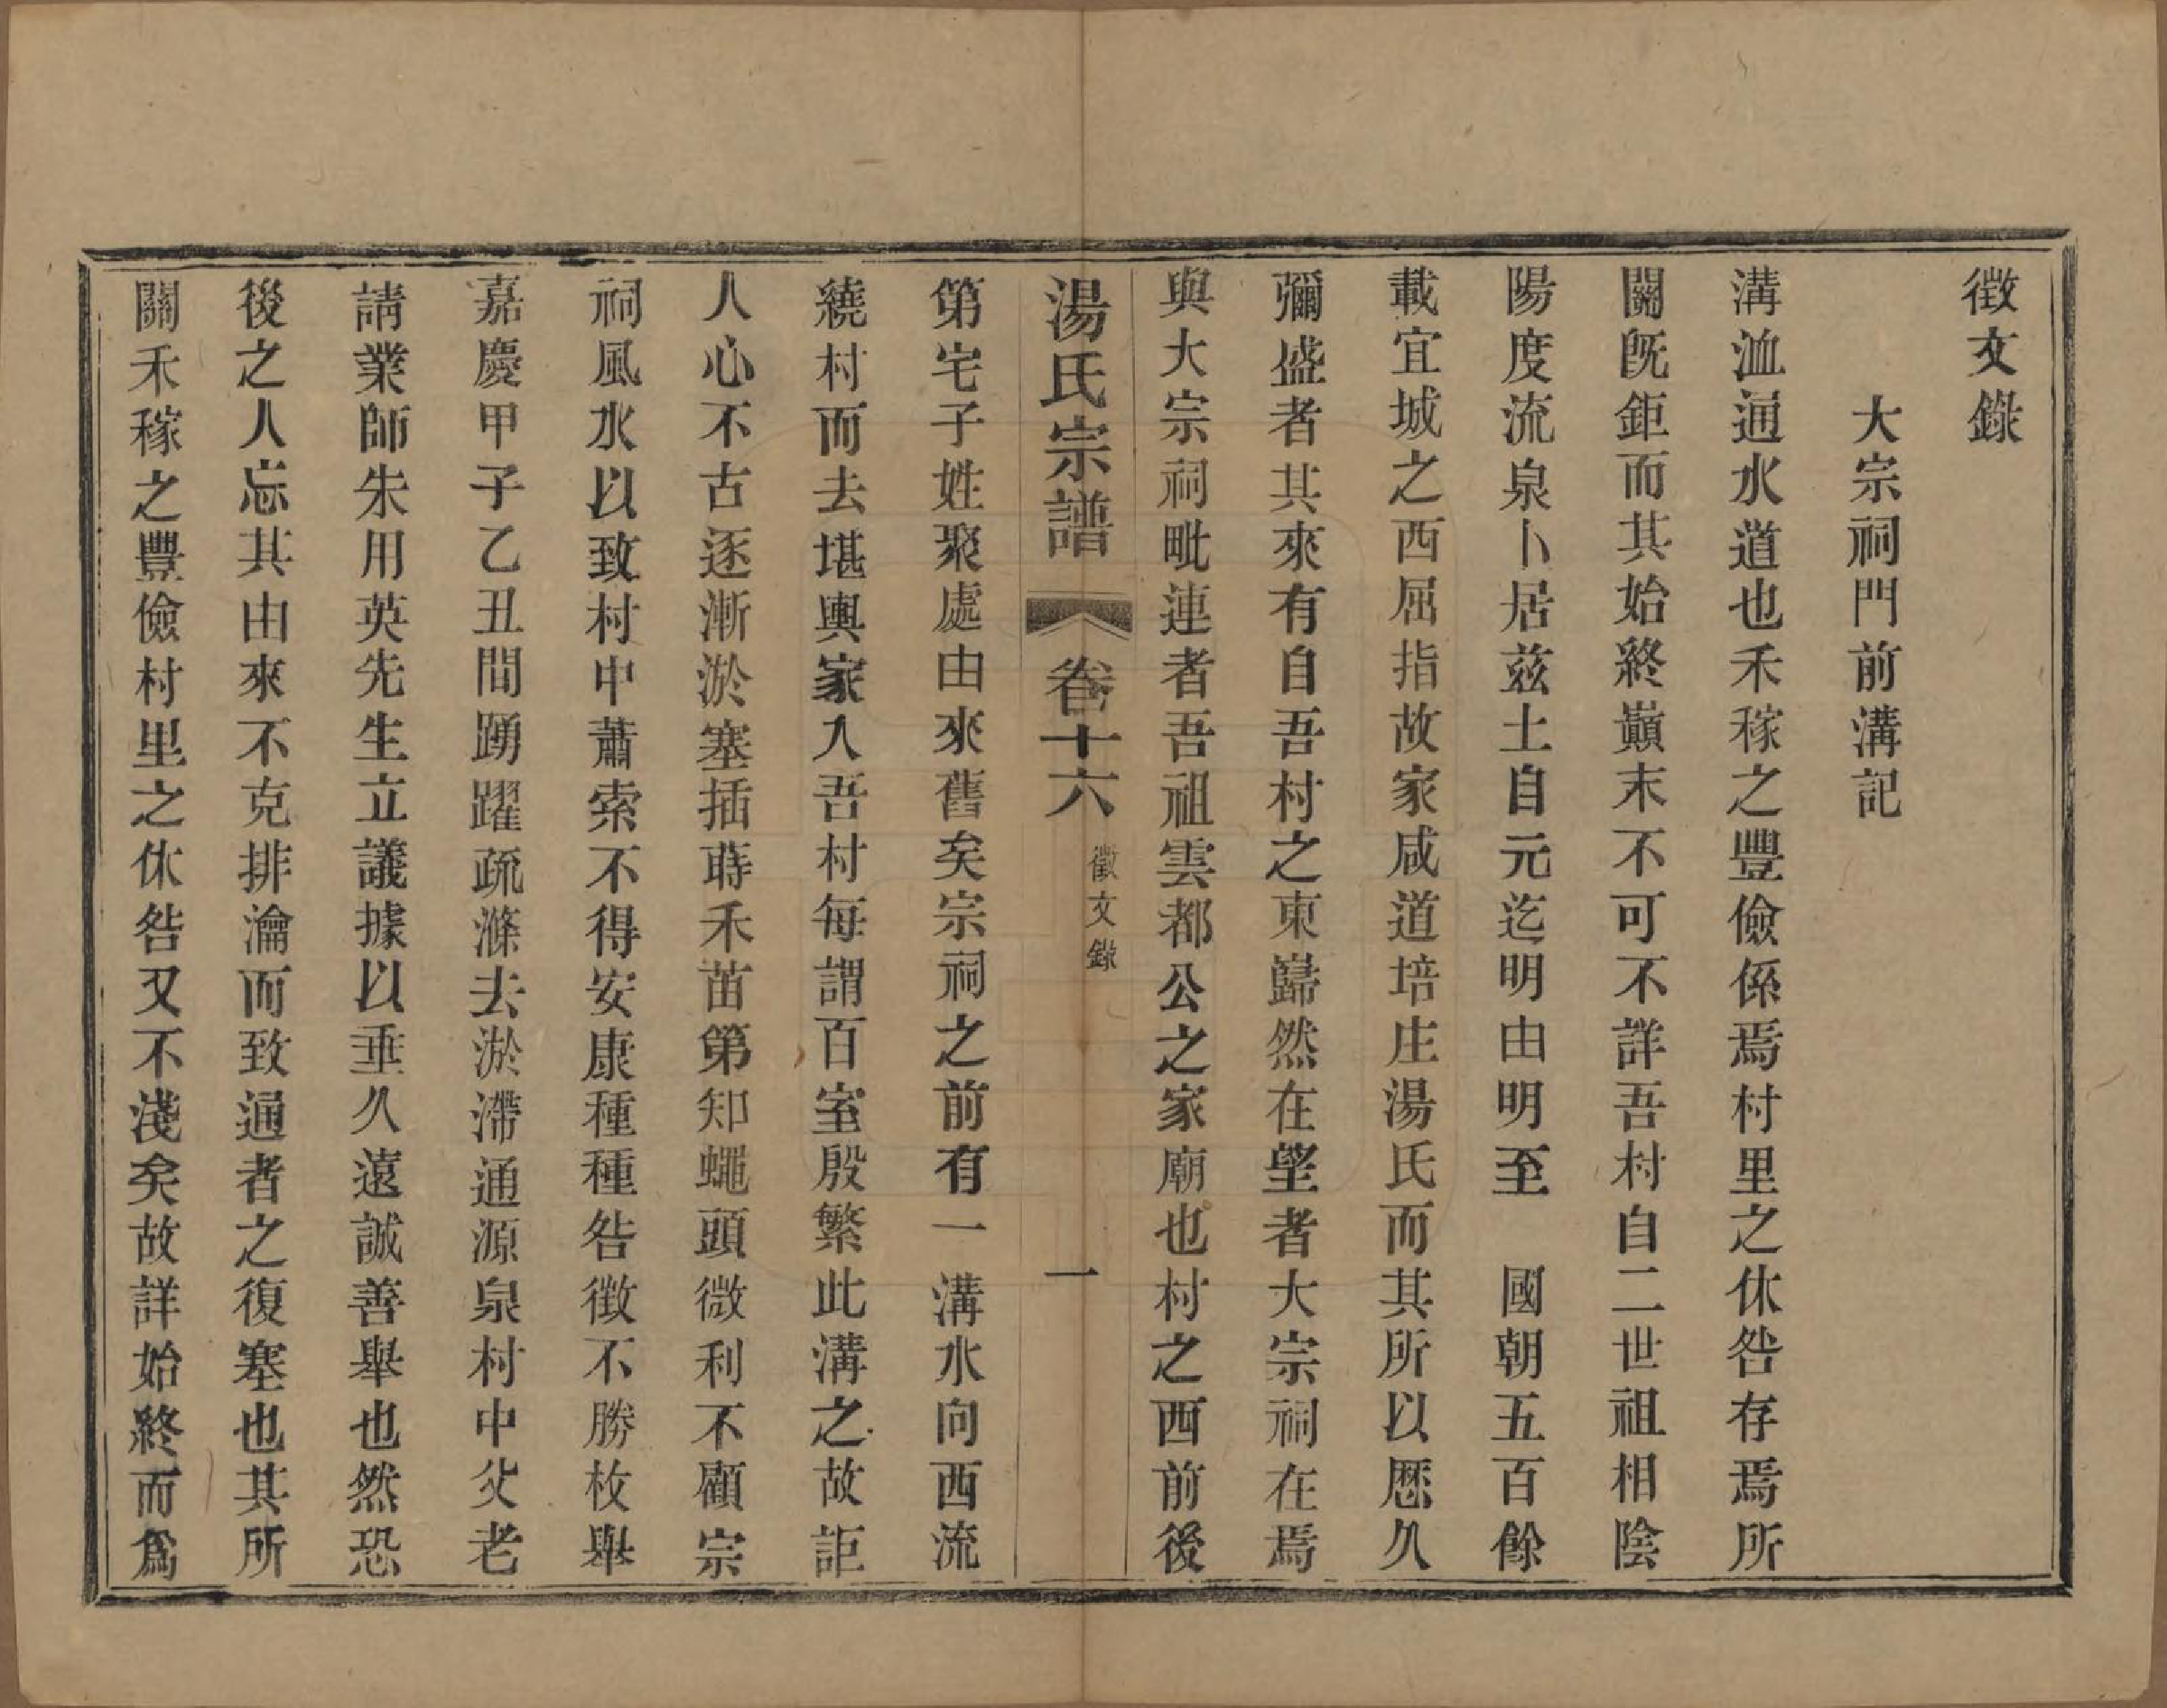 徴文錄
大宗祠門前溝記
溝洫通水道也禾稼之豐儉係焉村里之休咎存焉所
關旣鉅而其始終巔末不可不詳吾村自二世祖相陰
陽度流泉卜居茲土自元迄明由明至　國朝五百餘
載宜城之西屈指故家咸道培庄湯氏而其所以歷久
彌盛者其來有自吾村之東巋然在望者大宗祠在焉
與大宗祠毗連者吾祖雲都公之家廟也村之西前後
湯氏宗譜　卷十六　徵文錄　一
第宅子姓聚處由來舊矣宗祠之前有一溝水向西流
繞村而去堪輿家入吾村每謂百室殷繁此溝之故詎
人心不古逐漸淤塞插蒔禾苗第知蠅頭微利不顧宗
祠風水以致村中蕭索不得安康種種咎徵不勝枚舉
嘉慶甲子乙丑間踴躍疏滌去淤滯通源泉村中父老
請業師朱用英先生立議據以垂久遠誠善舉也然恐
後之人忘其由來不克排瀹而致通者之復塞也其所
關禾稼之豐儉村里之休咎又不淺矣故詳始終而爲